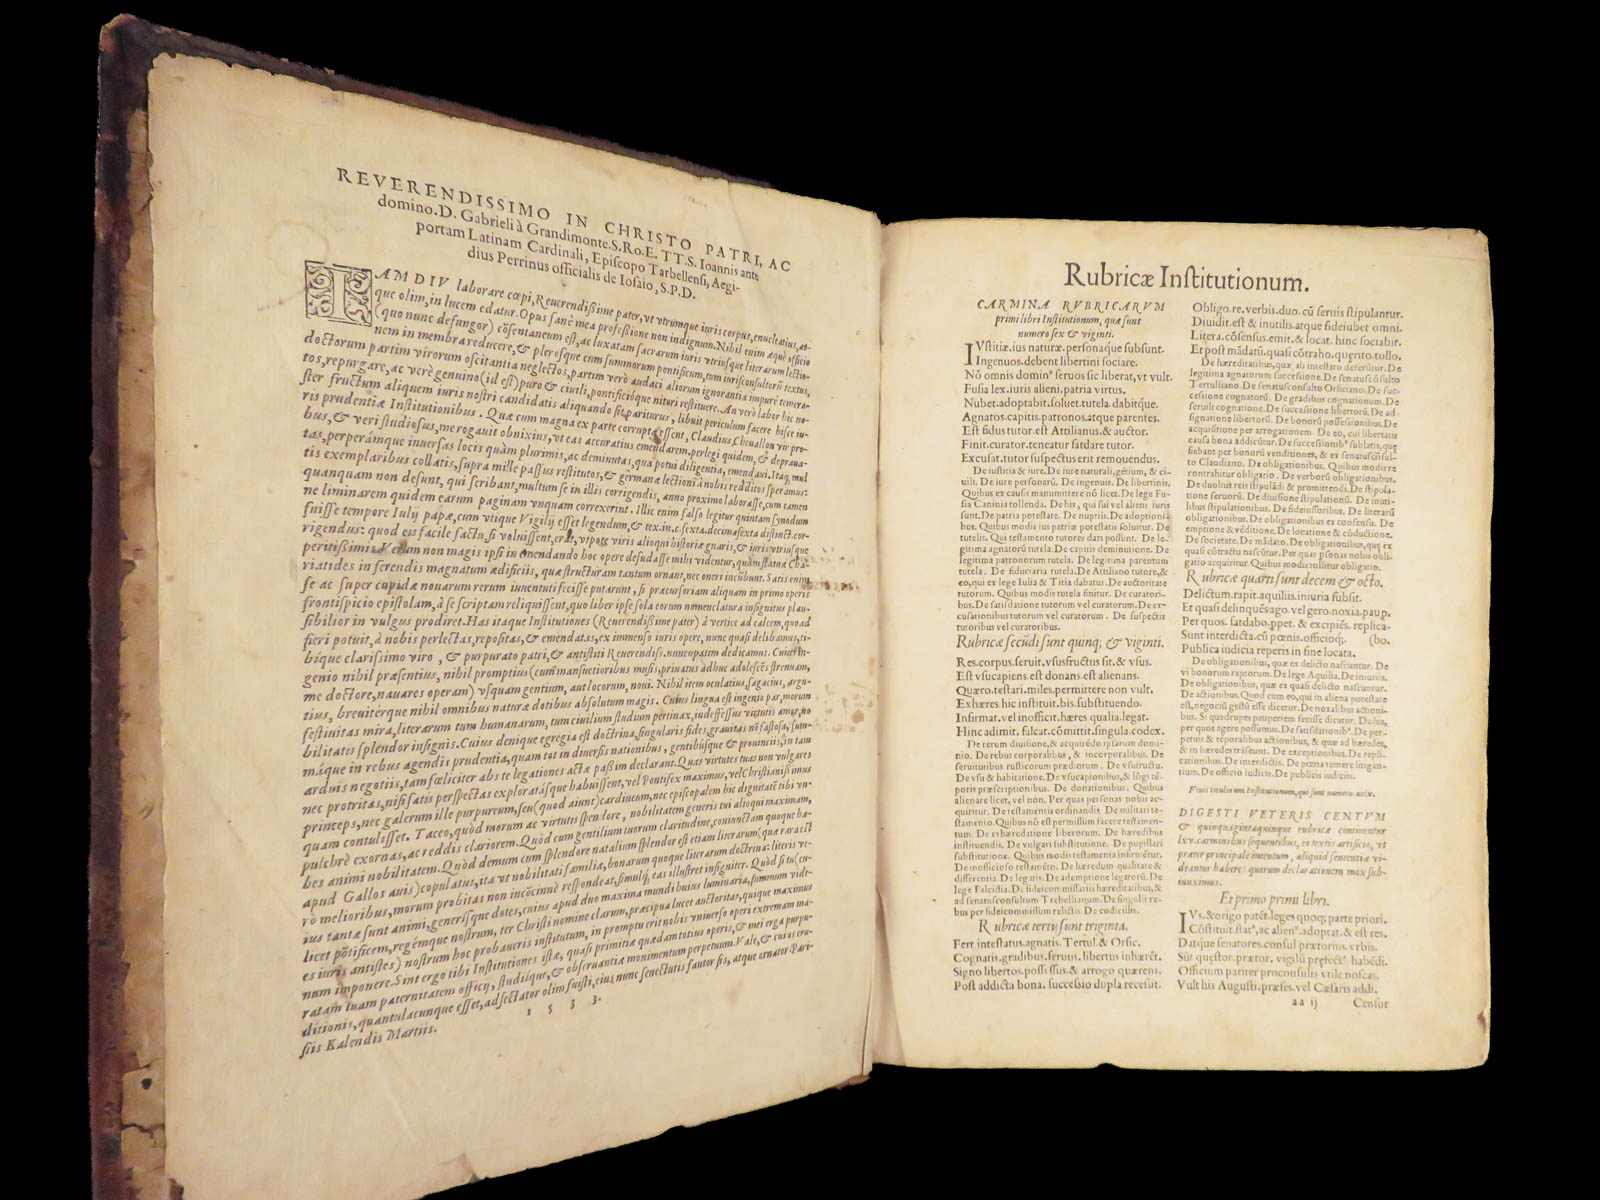 REVERENDISSIMO IN CHRISTO PATRI, AC
domino.D. Gabrieli à Grandimonte.S.Ro.E. TT.S. Ioannis ante
portam Latinam Cardinali, Episcopo Tarbellensi, Aegi-
dius Perrinus officialis de Iosaio, S.P.D.
IAMDIV laborare cœpi, Reuerendißime pater, vt vtrunque iuris corpus, enucleatius, at-
que olim, in lucem edatur. Opus sanè mea professione non indignum. Nihil enim æquè officio
(quo nunc defungor) cõsentaneum est, ac luxatam sacrarum iuris vtriusque literarum lectio-
nem in membra reducere, & plerosque cum summorum pontificum, tum iurisconsultorũ textus,
doctorum partim virorum oscitantia neglectos, partim verò audaci aliorum ignorantia impurè temera-
tos, repurgare, ac verè genuino (id est) puro & ciuili, pontificióque nitori restituere. An verò labor hic no-
ster fructum aliquem iuris nostri candidatis aliquando sit pariturus, libuit periculum facere hisce iu-
ris prudentiæ Institutionibus. Quæ cum magna ex parte corruptæ essent, Claudius Cheuallon vir pro-
bus, & veri studiosus, me rogauit obnixius, vt eas accuratius emendarem. perlegi quidem, & depraua-
tas, perperámque inuersas locis quàm plurimis, ac deminutas, qua potui diligentia, emendaui. Itaq; mul
tis exemplaribus collatis, supra mille passus restitutos, & germanæ lectioni à nobis redditos speramus:
quanquam non desunt, qui scribant, multum se in illis corrigendis, anno proximo laborasse, cum tamen
ne liminarem quidem earum paginam vnquam correxerint. Illic enim falso legitur quintam synodum
fuisse tempore Iulij papæ, cum vtique Vigilij esset legendum, & tex. in.c. sexta. decimasexta distinct. cor-
rigendus: quod eis facile factu, si voluissent, erat, vtpote viris alioqui historiæ gnaris, & iuris vtriusque
peritißimis. Verum non magis ipsi in emendando hoc opere desudasse mihi videntur, quàm statuæ Cha-
riatides in ferendis magnatum ædificiis, quæ structuram tantum ornant, nec oneri incũbunt. Satis enim
se ac super cupidæ nouarum rerum iuuentuti fecisse putarunt, si præcursoriam aliquam in primo operis
frontispicio epistolam, à se scriptam reliquissent, quo liber ipse sola eorum nomenclatura insignitus plau-
sibilior in vulgus prodiret. Has itaque Institutiones (Reuerendißime pater) à vertice ad calcem, quoad
fieri potuit, à nobis perlectas, repositas, & emendatas, ex immenso iuris opere, nunc quasi delibamus, ti-
bíque clarissimo viro, & purpurato patri, & antistiti Reuerendiss. nuncupatim dedicamus. Cuius in-
genio nihil præsentius, nihil promptius (cum mansuetioribus musis, priuatus adhuc adolescẽs strenuam,
me doctore, nauares operam) vsquam gentium, aut locorum, noui. Nihil item oculatius, sagacius, argu-
tius, breuitérque nihil omnibus naturæ dotibus absolutum magis. Cuius lingua est ingenio par, morum
festiuitas mira, literarum tum humanarum, tum ciuilium studium pertinax, indefessus virtutis amor, no
bilitatis splendor insignis. Cuius denique egregia est doctrina, singularis fides, grauitas nõ fastosa, sum-
máque in rebus agendis prudentia, quam tot in diuersis nationibus, gentibúsque & prouinciis, in tam
arduis negotiis, tam fœliciter abs te legationes actæ paßim declarant. Quas virtutes tuas non vulgares
nec protritas, nisi satis perspectas exploratásque habuissent, vel Pontifex maximus, vel Christianiß imus
princeps, nec galerum ille purpureum, seu (quod aiunt) cardineum, nec episcopalem hic dignitatẽ tibi vn-
quam contulisset. Taceo, quòd morum ac virtutis splendore, nobilitatem generis tui alioqui maximam,
pulchrè exornas, ac reddis clariorem. Quòd cum gentilium tuorum claritudine, coniunctam quoque ha-
bes animi nobilitatem. Quòd demum cum splendore natalium splendor est etiam literarum (quæ rara est
apud Gallos auis) copulatus, ita vt nobilitati familiæ, bonarum quoque literarum doctrina: literis ve-
rò melioribus, morum probitas non incõcinnè respondeat, simulq; eas illustret insigniter. Quòd si tu (cu-
ius tantæ sunt animi, generísque dotes, cuius apud duo maxima mundi huius luminaria, summum vide-
licet põtificem, regémque nostrum, ter Christi nomine clarum, præcipua lucet auctoritas, quique maximus
es iuris antistes) nostrum hoc probaueris institutum, in promptu erit nobis vniuerso operi extremam ma-
num imponere. Sint ergo tibi Institutiones istæ, quasi primitiæ quædam totius operis, & mei erga purpu-
ratam tuam paternitatem officij, studiíque, & obseruantiæ monimentum perpetuum. Vale, & cuius eru-
ditionis, quantulacunque esset, adsectator olim fuisti, eius nunc senectutis fautor sis, atque ornator. Pari-
siis Kalendis Martiis. 1 5 3 3.
Rubricæ Institutionum.
CARMINA RVBRICARVM
primi libri Institutionum, quæ sunt
numero sex & viginti.
IVstitiæ.ius naturæ.personaque subsunt.
Ingenuos.debent libertini sociare.
Nõ omnis dominꝰ seruos sic liberat, vt vult.
Fusia lex.iuris alieni.patria virtus.
Nubet.adoptabit.soluet.tutela.dabitque.
Agnatos.capitis.patronos.atque parentes.
Est fidus tutor.est Attilianus.& auctor.
Finit.curator.teneatur satdare tutor.
Excusat.tutor suspectus erit remouendus.
De iustitia & iure. De iure naturali, gẽtium, & ci-
uili. De iure personarũ. De ingenuis. De libertinis.
Quibus ex causis manumittere nõ licet. De lege Fu-
sia Caninia tollenda. De his, qui sui vel alieni iuris
sunt. De patria potestate. De nuptiis. De adoptioni-
bus. Quibus modis ius patriæ potestatis soluitur. De
tutelis. Qui testamento tutores dari possunt. De le-
gitima agnatorum tutela. De capitis deminutione. De
legitima patronorum tutela. De legitima parentum
tutela. De fiduciaria tutela. De Attiliano tutore, &
eo, qui ex lege Iulia & Titia dabatur. De auctoritate
tutorum. Quibus modis tutela finitur. De curatori-
bus. De satisdatione tutorum vel curatorum. De ex-
cusationibus tutorum vel curatorum. De suspectis
tutoribus vel curatoribus.
Rubricæ secũdi sunt quinq; & viginti.
Res.corpus.seruit.vsusfructus sit.& vsus.
Est vsucapiens.est donans.est alienans.
Quæro.testari.miles.permittere non vult.
Exhæres hic instituit.bis.substituendo.
Infirmat.vel inofficit.hæres qualia.legat.
Hinc adimit.falcat.cõmittit.singula.codex.
De rerum diuisione, & acquirẽdo ipsarum domi-
nio. De rebus corporalibus, & incorporalibus. De
seruitutibus rusticorum prædiorum. De vsufructu.
De vsu & habitatione. De vsucapionibus, & lõgi tẽ-
poris præscriptionibus. De donationibus. Quibus
alienare licet, vel non. Per quas personas nobis ac-
quiritur. De testamentis ordinandis. De militari te-
stamento. Quibus nõ est permissum facere testamen-
tum. De exhæredatione liberorum. De hæredibus
instituendis. De vulgari substitutione. De pupillari
substitutione. Quibus modis testamenta infirmẽtur.
De inofficioso testamento. De hæredum qualitate &
differentia. De legatis. De ademptione legatorũ. De
lege Falcidia. De fideicommissariis hæreditatibus, &
ad senatusconsultum Trebellianum. De singulis re-
bus per fideicommissum relictis. De codicillis.
Rubricæ tertij sunt triginta.
Fert.intestatus.agnatis.Tertul.& Orfic.
Cognatis.gradibus.seruus.libertus inhæret.
Signo libertos.possessus.& arrogo quærens.
Post addicta bona.successio dupla recesit.
Obligo.re.verbis.duo.cũ seruis stipulantur.
Diuidit.est & inutilis.atque fideiubet omni.
Litera.cõsensus.emit.& locat.hinc sociabit.
Et post mãdatũ.quasi cõtraho.quærito.tollo.
De hæreditatibus, quæ ab intestato deferũtur. De
legitima agnatorum successione. De senatuscõsulto
Tertulliano. De senatusconsulto Orficiano. De suc-
cessione cognatorũ. De gradibus cognationum. De
seruili cognatione. De successione libertorũ. De ad-
signatione libertorũ. De bonorũ possessionibus. De
acquisitione per arrogationem. De eo, cui libertatis
causa bona addicũtur. De successionibꝰ sublatis, quæ
fiebant per bonorũ venditiones, & ex senatuscõsul-
to Claudiano. De obligationibus. Quibus modis re
contrahitur obligatio. De verborũ obligationibus.
De duobus reis stipulãdi & promittendi. De stipula-
tione seruorũ. De diuisione stipulationũ. De inuti-
libus stipulationibus. De fideiussoribus. De literarũ
obligationibus. De obligationibus ex consensu. De
emptione & vẽditione. De locatione & cõductione.
De societate. De mãdato. De obligationibus, quæ ex
quasi cõtractu nascũtur. Per quas psonas nobis obli-
gatio acquiritur. Quibus modis tollitur obligatio.
Rubricæ quarti sunt decem & octo.
Delictum.rapit.aquiliis.iniuria subsit.
Et quasi delinquẽs.ago.vel gero.noxia.paup.
Per quos.satdabo.ppet.& excipiẽs.replica-
Sunt interdicta.cũ pœnis.officioq;. (bo.
Publica iudicia reperis in fine locata.
De obligationibus, quæ ex delicto nascuntur. De
vi bonorum raptorum. De lege Aquilia. De iniuriis.
De obligationibus, quæ ex quasi delicto nascuntur.
De actionibus. Quod cum eo, qui in aliena potestate
est, negociũ gestũ esse dicitur. De noxalibus actioni-
bus. Si quadrupes pauperiem fecisse dicatur. De his,
per quos agere possumus. De satisdationibꝰ. De per-
petuis & tẽporalibus actionibus, & quæ ad hæredes,
& in hæredes trãseunt. De exceptionibus. De repli-
cationibus. De interdictis. De pœna temere litigan-
tium. De officio iudicis. De publicis iudiciis.
Finis titulorum Institutionum, qui sunt numero.xcix.
DIGESTI VETERIS CENTVM
& quinquagintaquinque rubricæ continentur
lxv.carminibus sequentibus, eo textis artificio, vt
præter principale intentum, aliquid sententiæ vi-
deantur habere: quorum declarationem mox sub-
iunximus.
Et primo primi libri.
IVs.& origo patẽt.leges quoq; parte priori.
Cõstituit.statꝰ, ac alienꝰ.adoptat.& est res.
Datque senatores.consul prætorius.vrbis.
Sũt quæstor.prætor.vigilũ præfectꝰ habẽdi.
Officium pariter proconsulis vtile noscas.
Vult his Augusti.præses.vel Cæsaris addi.
aa ij Censor